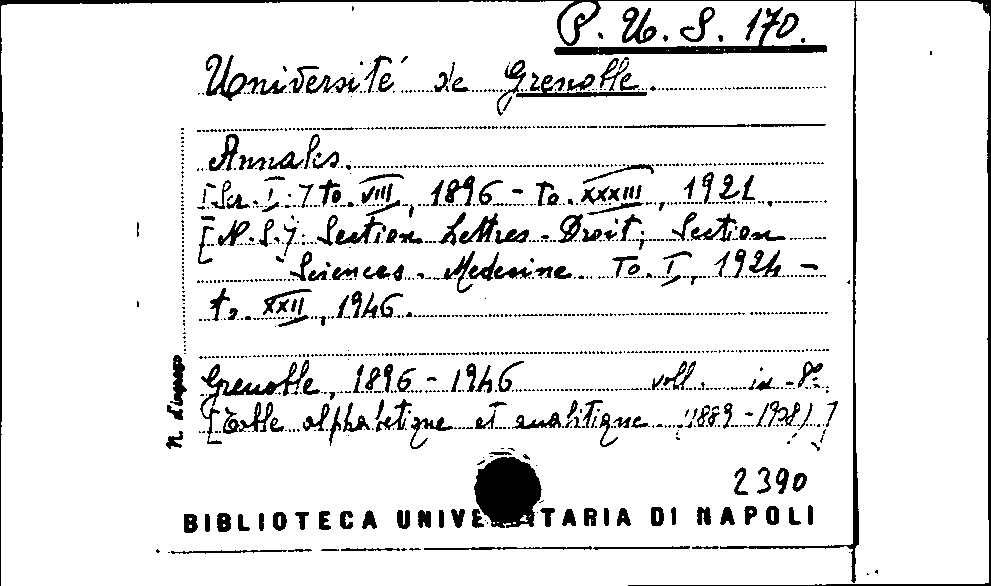 P. U. S. 170.
Université de Grenoble.
Annales.
[Ser. I.] to. VIII, 1896 - to. XXXIII, 1921.
[N.S.] Section Lettres - Droit; Section
Sciences - Medecine. To. I, 1924 -
to. XXII, 1946.
Grenoble, 1896 - 1946 voll. in-8º.
[Table alphabetique et analitique (1889-1928)]
N. d'ingresso
2390
BIBLIOTECA UNIVERSITARIA DI NAPOLI